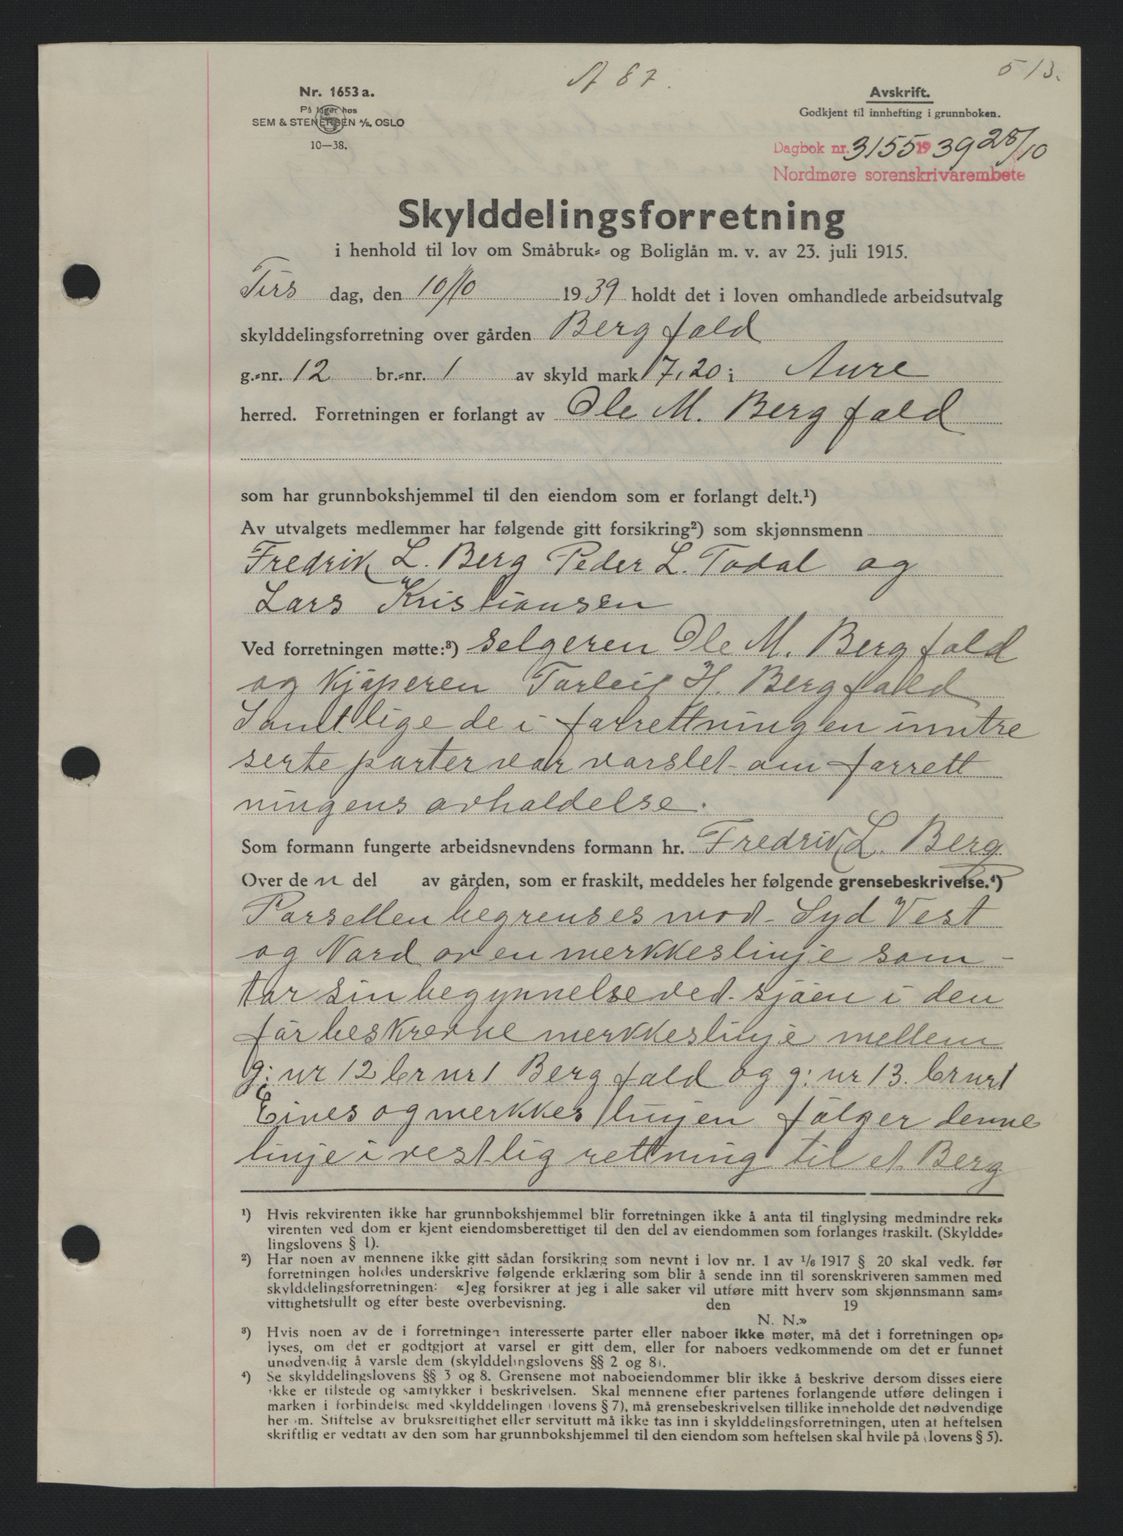 A 87.
513.
Nr. 1653 a.
På lager hos
SEM & STENERSEN A/S, OSLO
10—38.
Avskrift.
Godkjent til innhefting i grunnboken.
Dagbok nr. 3155 1939 28/10
Nordmøre sorenskrivarembete
Skylddelingsforretning
i henhold til lov om Småbruk- og Boliglån m. v. av 23. juli 1915.
Tirs dag, den 10/10 1939 holdt det i loven omhandlede arbeidsutvalg
skylddelingsforretning over gården Bergfald
g.-nr. 12 br.-nr. 1 av skyld mark 17,20 i Aure
herred. Forretningen er forlangt av Ole M. Bergfald
som har grunnbokshjemmel til den eiendom som er forlangt delt.¹)
Av utvalgets medlemmer har følgende gitt forsikring²) som skjønnsmenn
Fredrik L. Berg Peder L. Todal og
Lars Kristiansen
Ved forretningen møtte:³) selgeren Ole M. Bergfald
og kjøperen Torleif H. Bergfald
Samtlige de i forrettningen inntre
serte parter var varslet om forrett
ningens avholdelse.
Som formann fungerte arbeidsnevndens formann hr. Fredrik L. Berg
Over de n del av gården, som er fraskilt, meddeles her følgende grensebeskrivelse.⁴)
Parsellen begrenses mod Syd Vest
og Nord av en merkkeslinje som
tar sin begynnelse ved sjøen i den
før beskrevne merkkeslinje mellem
g: nr 12 br nr 1 Bergfald og g: nr 13. br nr 1
Eines og merkkeslinjen følger denne
linje i vestlig rettning til et Berg
¹) Hvis rekvirenten ikke har grunnbokshjemmel blir forretningen ikke å anta til tinglysing medmindre rek-
virenten ved dom er kjent eiendomsberettiget til den del av eiendommen som forlanges fraskilt. (Skyldde-
lingslovens § 1).
²) Har noen av mennene ikke gitt sådan forsikring som nevnt i lov nr. 1 av 1/6 1917 § 20 skal vedk. før
forretningen holdes underskrive følgende erklæring som blir å sende inn til sorenskriveren sammen med
skylddelingsforretningen: «Jeg forsikrer at jeg i alle saker vil utføre mitt hverv som skjønnsmann sam-
vittighetsfullt og efter beste overbevisning. den 19
N. N.»
³) Hvis noen av de i forretningen interesserte parter eller naboer ikke møter, må det i forretningen op-
lyses, om det er godtgjort at varsel er gitt dem, eller for naboers vedkommende om det er funnet
unødvendig å varsle dem (skylddelingslovens §§ 2 og 8).
⁴) Se skylddelingslovens §§ 3 og 8. Grensene mot naboeiendommer blir ikke å beskrive dersom disses eiere
ikke er tilstede og samtykker i beskrivelsen. Skal mennene efter partenes forlangende utføre delingen i
marken i forbindelse med skylddelingen (lovens § 7), må grensebeskrivelsen tillike inneholde det nødvendige
her om. Stiftelse av bruksrettighet eller servitutt må ikke tas inn i skylddelingsforretningen, uten at heftelsen
skriftlig er vedtatt av den som har grunnbokshjemmel til den eiendom som heftelsen skal hvile på (lovens § 5).